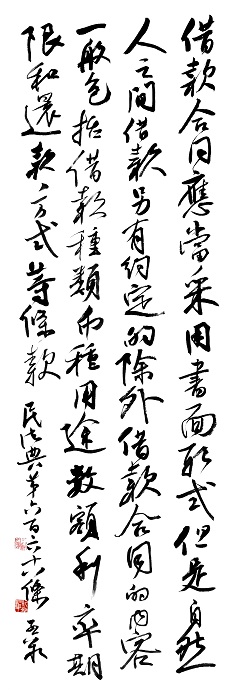 借款合同應當采用書面形式但是自然
人之间借款另有约定的除外借款合同的内容
一般包括借款種類币種用途数額利率期
限和還款方式等條款
民法典第六百六十八條